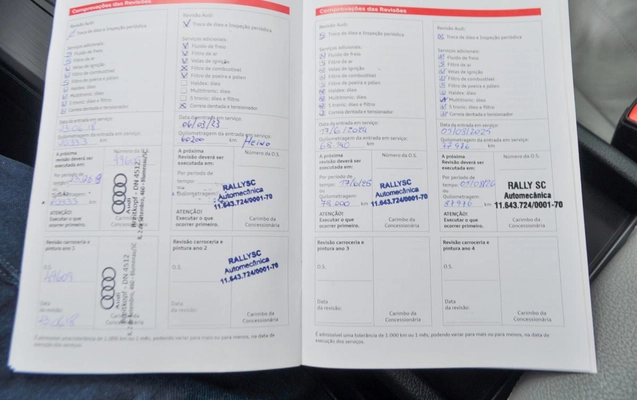 Comprovações das Revisões
Revisão Audi:
Troca de óleo e Inspeção periódica
Serviços adicionais:
Fluido de freio
Filtro de ar
Velas de ignição
Filtro de combustível
Filtro de poeira e pólen
Haldex: óleo
Multitronic: óleo
S tronic: óleo e filtro
Correia dentada e tensionador
Data da entrada em serviço:
Quilometragem da entrada em serviço:
km
A próxima
revisão deverá ser
executada em:
Por período de
tempo:
ou
Quilometragem:
km
ATENÇÃO!
Executar o que
ocorrer primeiro.
Número da O.S.
Audi
Breitkopf - DN 4512
Revisão carroceria e
pintura ano 1
O.S.
Data
da revisão:
Carimbo da
Concessionária
Revisão Audi:
Troca de óleo e Inspeção periódica
Serviços adicionais:
Fluido de freio
Filtro de ar
Velas de ignição
Filtro de combustível
Filtro de poeira e pólen
Haldex: óleo
Multitronic: óleo
S tronic: óleo e filtro
Correia dentada e tensionador
Data da entrada em serviço:
06/03/23
Quilometragem da entrada em serviço:
60200 km
A próxima
revisão deverá ser
executada em:
Por período de
tempo:
ou
Quilometragem:
ATENÇÃO!
Executar o que
ocorrer primeiro.
Número da O.S.
RALLYSC
Automecânica
11.643.724/0001-70
Carimbo da
Concessionária
Revisão carroceria e
pintura ano 2
O.S.
RALLYSC
Automecânica
11.643.724/0001-70
Data
da revisão:
Carimbo da
Concessionária
É admissível uma tolerância de 1.000 km ou 1 mês, podendo variar para mais ou para menos, na data de
execução dos serviços.
Comprovações das Revisões
Revisão Audi:
Troca de óleo e Inspeção periódica
Serviços adicionais:
Fluido de freio
Filtro de ar
Velas de ignição
Filtro de combustível
Filtro de poeira e pólen
Haldex: óleo
Multitronic: óleo
S tronic: óleo e filtro
Correia dentada e tensionador
Data da entrada em serviço:
Quilometragem da entrada em serviço:
km
A próxima
revisão deverá ser
executada em:
Por período de
tempo:
ou
Quilometragem:
78.000 km
ATENÇÃO!
Executar o que
ocorrer primeiro.
Número da O.S.
RALLYSC
Automecânica
11.643.724/0001-70
Carimbo da
Concessionária
Revisão carroceria e
pintura ano 3
O.S.
Data
da revisão:
Carimbo da
Concessionária
Revisão Audi:
Troca de óleo e Inspeção periódica
Serviços adicionais:
Fluido de freio
Filtro de ar
Velas de ignição
Filtro de combustível
Filtro de poeira e pólen
Haldex: óleo
Multitronic: óleo
S tronic: óleo e filtro
Correia dentada e tensionador
Data da entrada em serviço:
Quilometragem da entrada em serviço:
77.976 km
A próxima
revisão deverá ser
executada em:
Por período de
tempo:
ou
Quilometragem:
87.976 km
ATENÇÃO!
Executar o que
ocorrer primeiro.
Número da O.S.
RALLY SC
Automecânica
11.643.724/0001-70
Carimbo da
Concessionária
Revisão carroceria e
pintura ano 4
O.S.
Data
da revisão:
Carimbo da
Concessionária
É admissível uma tolerância de 1.000 km ou 1 mês, podendo variar para mais ou para menos, na data de
execução dos serviços.